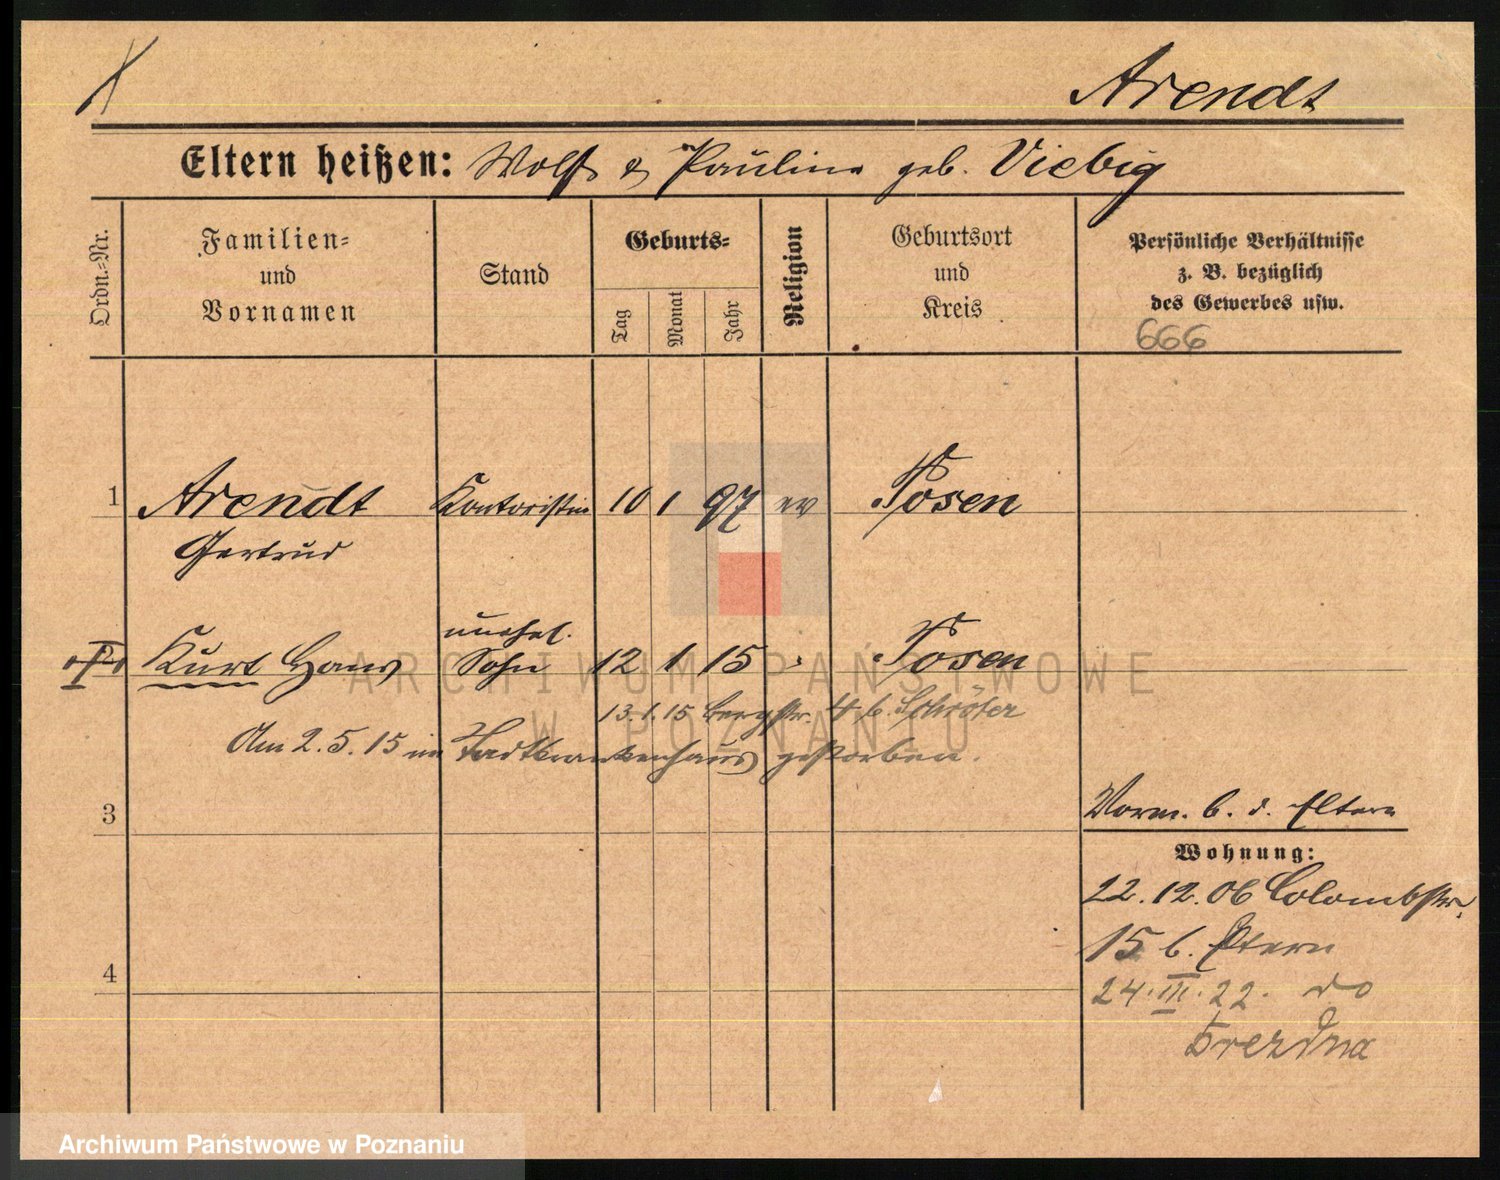 Arendt
Eltern heißen: Wolf & Pauline geb. Viebig
Ordn.-Nr.
Familien-
und
Vornamen
Stand
Geburts-
Tag
Monat
Jahr
Religion
Geburtsort
und
Kreis
Persönliche Verhältnisse
z. B. bezüglich
des Gewerbes usw.
666
1 Arendt Kontoristin 10 1 97 ev Posen
Gertrud
unehel.
Kurt Hans Sohn 12 1 15 Posen
13.1.15 Bergstr. 4 b. Schröter
Am 2.5.15 im Stadtkrankenhaus gestorben.
3
Vorm. b. d. Eltern
Wohnung:
22.12.06 Colombstr.
15 b. Eltern
4
24.III.22. do
Drezdna
ARCHIWUM PAŃSTWOWE
W POZNANIU
Archiwum Państwowe w Poznaniu